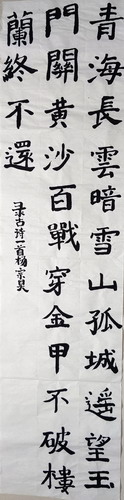 青海長雲暗雪山孤城遥望玉
門關黄沙百戰穿金甲不破樓
蘭終不還
录古诗一首楊宗昊